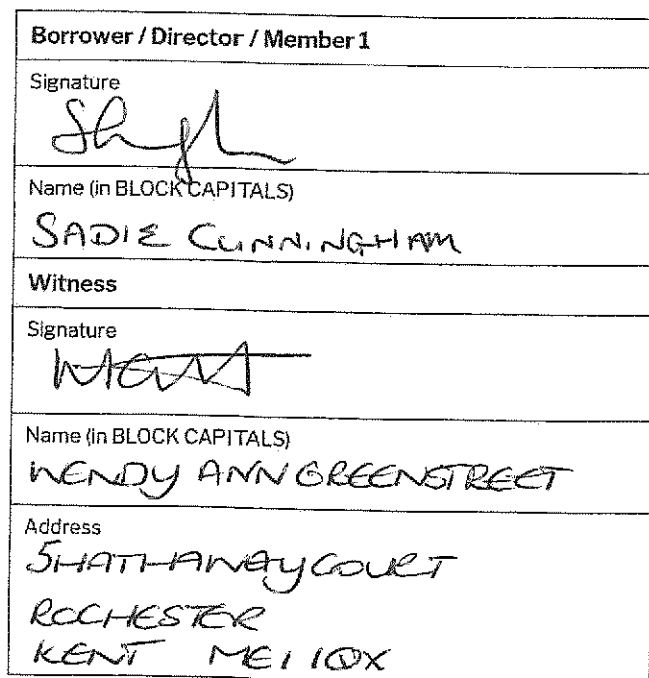 Borrower / Director / Member 1
Signature
Name (in BLOCK CAPITALS)
SADIE CUNNINGHAM
Witness
Signature
Name (in BLOCK CAPITALS)
WENDY ANN GREENSTREET
Address
5 HATHAWAY COURT
ROCHESTER
KENT ME1 1QX